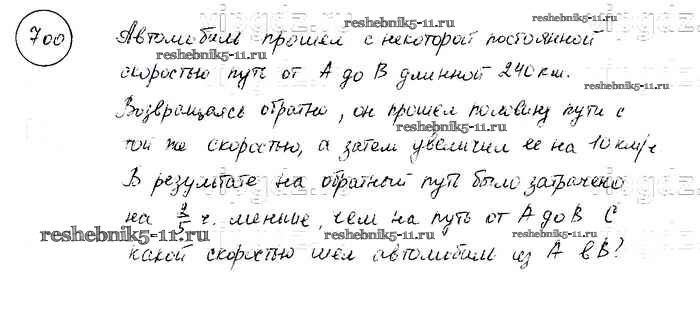 700
Автомобиль прошел с некоторой постоянной
скоростью путь от А до В длинной 240 км.
Возвращаясь обратно, он прошел половину пути с
той же скоростью, а затем увеличил ее на 10 км/ч
В результате на обратный путь было затрачено
на 2/5 ч. меньше, чем на путь от А до В С
какой скоростью шел автомобиль из А в В?
reshebnik5-11.ru
reshebnik5-11.ru
reshebnik5-11.ru
reshebnik5-11.ru
reshebnik5-11.ru
reshebnik5-11.ru
reshebnik5-11.ru
reshebnik5-11.ru